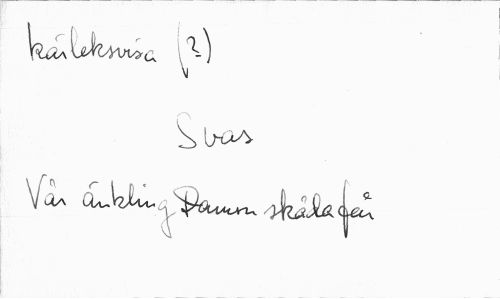 kärleksvisa (?)
Svar
Vår änkling Damon skåda får